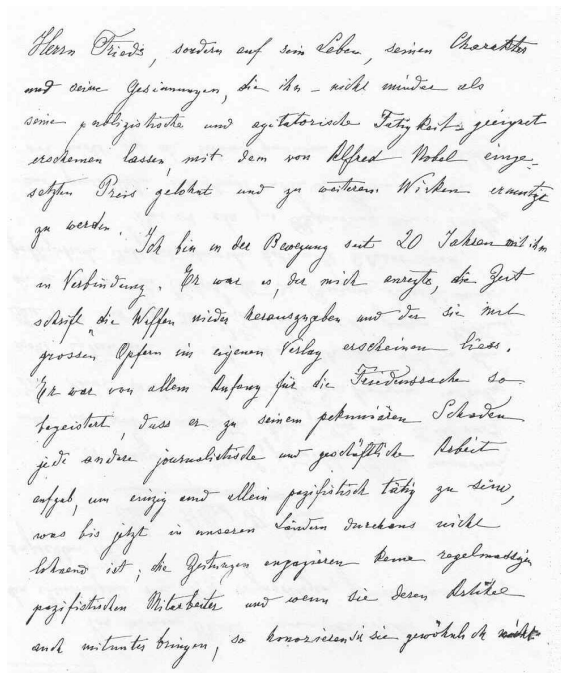 Herrn Fried's, sondern auf sein Leben, seinen Charakter
und seine Gesinnungen, die ihn – nicht minder als
seine publizistische und agitatorische Tätigkeit – geeignet
erscheinen lassen, mit dem von Alfred Nobel einge-
setzten Preis gelohnt und zu weiterem Wirken ermutigt
zu werden. Ich bin in der Bewegung seit 20 Jahren mit ihm
in Verbindung. Er war es, der mich anregte, die Zeit
schrift „die Waffen nieder herauszugeben und der sie mit
grossen Opfern im eigenen Verlag erscheinen liess.
Er war von allem Anfang für die Friedenssache so
begeistert, dass er zu seinem pekuniären Schaden
jede andere journalistische und geschäftliche Arbeit
aufgab, um einzig und allein pazifistisch tätig zu sein,
was bis jetzt in unseren Ländern durchaus nicht
lohnend ist; die Zeitungen engagieren keine regelmässigen
pazifistischen Mitarbeiter und wenn sie deren Artikel
auch mitunter bringen, so honorieren sie gewöhnlich nicht.